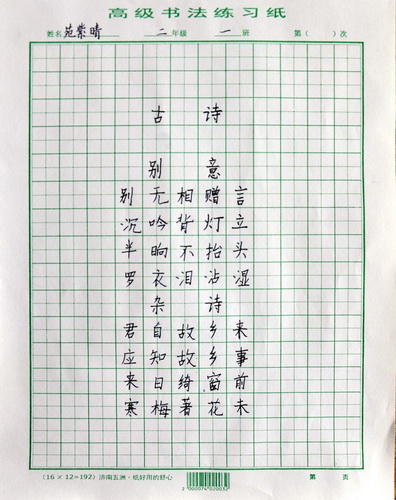 高级书法练习纸
姓名 苑紫晴 二年级 一班 第( )次
古诗
别意
别无相赠言
沉吟背灯立
半晌不抬头
罗衣泪沾湿
杂诗
君自故乡来
应知故乡事
来日绮窗前
寒梅著花未
(16×12=192) 济南五洲·纸好用的舒心 2000074020032 第 页